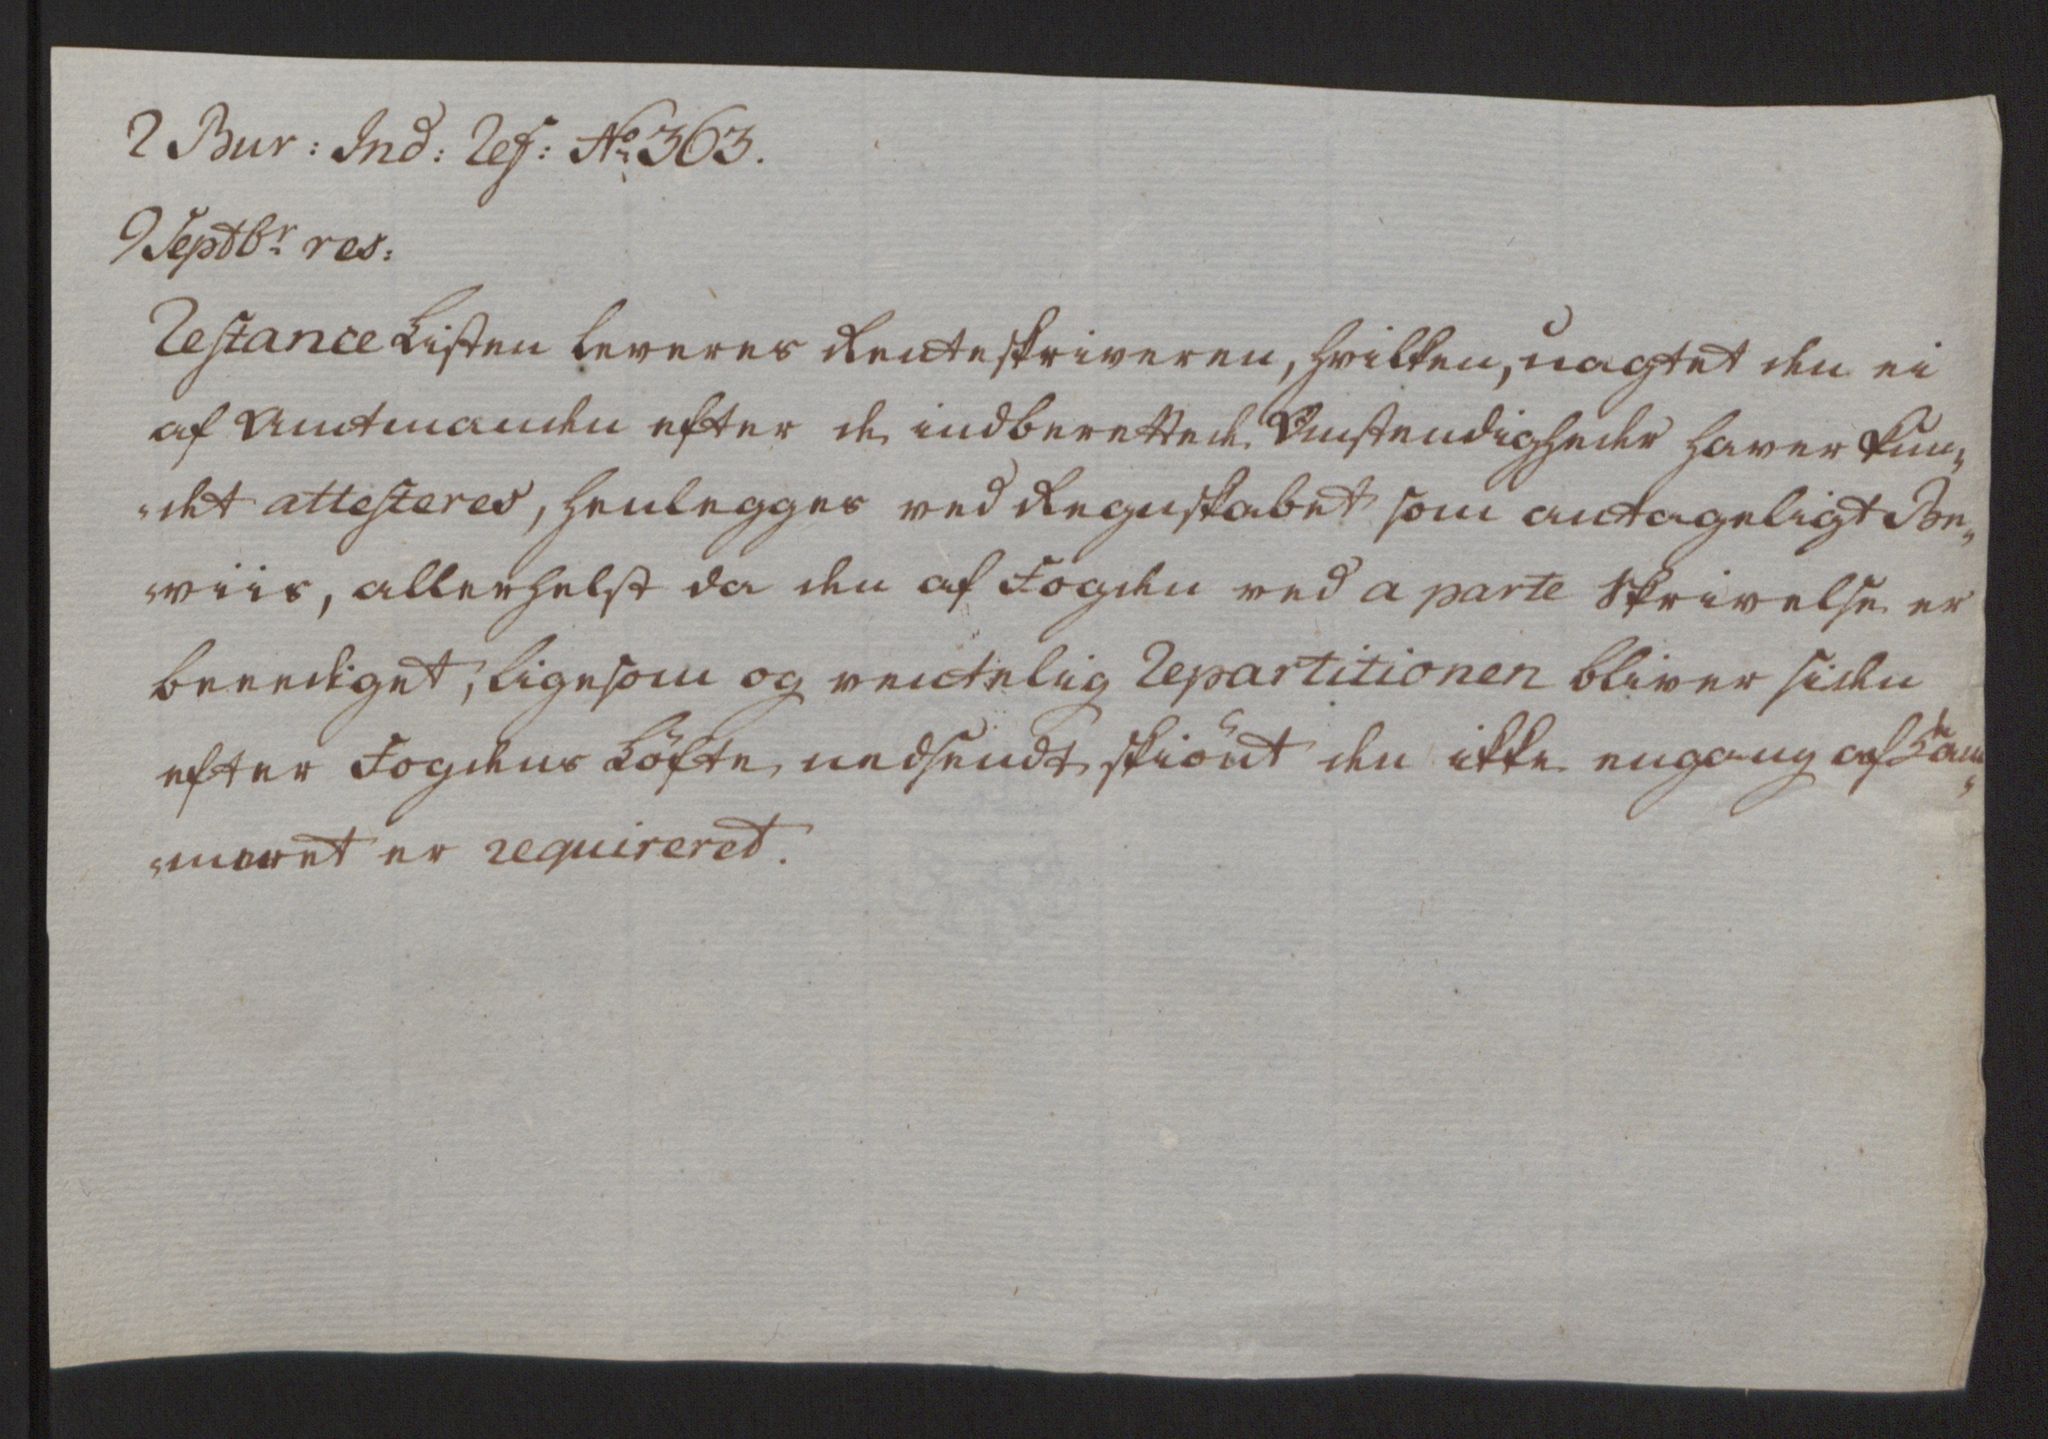 2 Bur: Ind: Ref: No 363.
9 Septbr res:
Restance Listen leveres Renteskriveren, hvilken, uagtet den ei
af Amtmanden efter de indberettede Omstendigheder haver kun„
„det attesteres, henlegges ved Regnskabet som antageligt Be„
„viis, allerhelst da den af Fogden ved a parte Skrivelse er
beeediget, ligesom og ventelig Repartitionen bliver siden
efter Fogdens Löfte nedsendt, skiönt den ikke engang af Kam„
„meret er requireret.